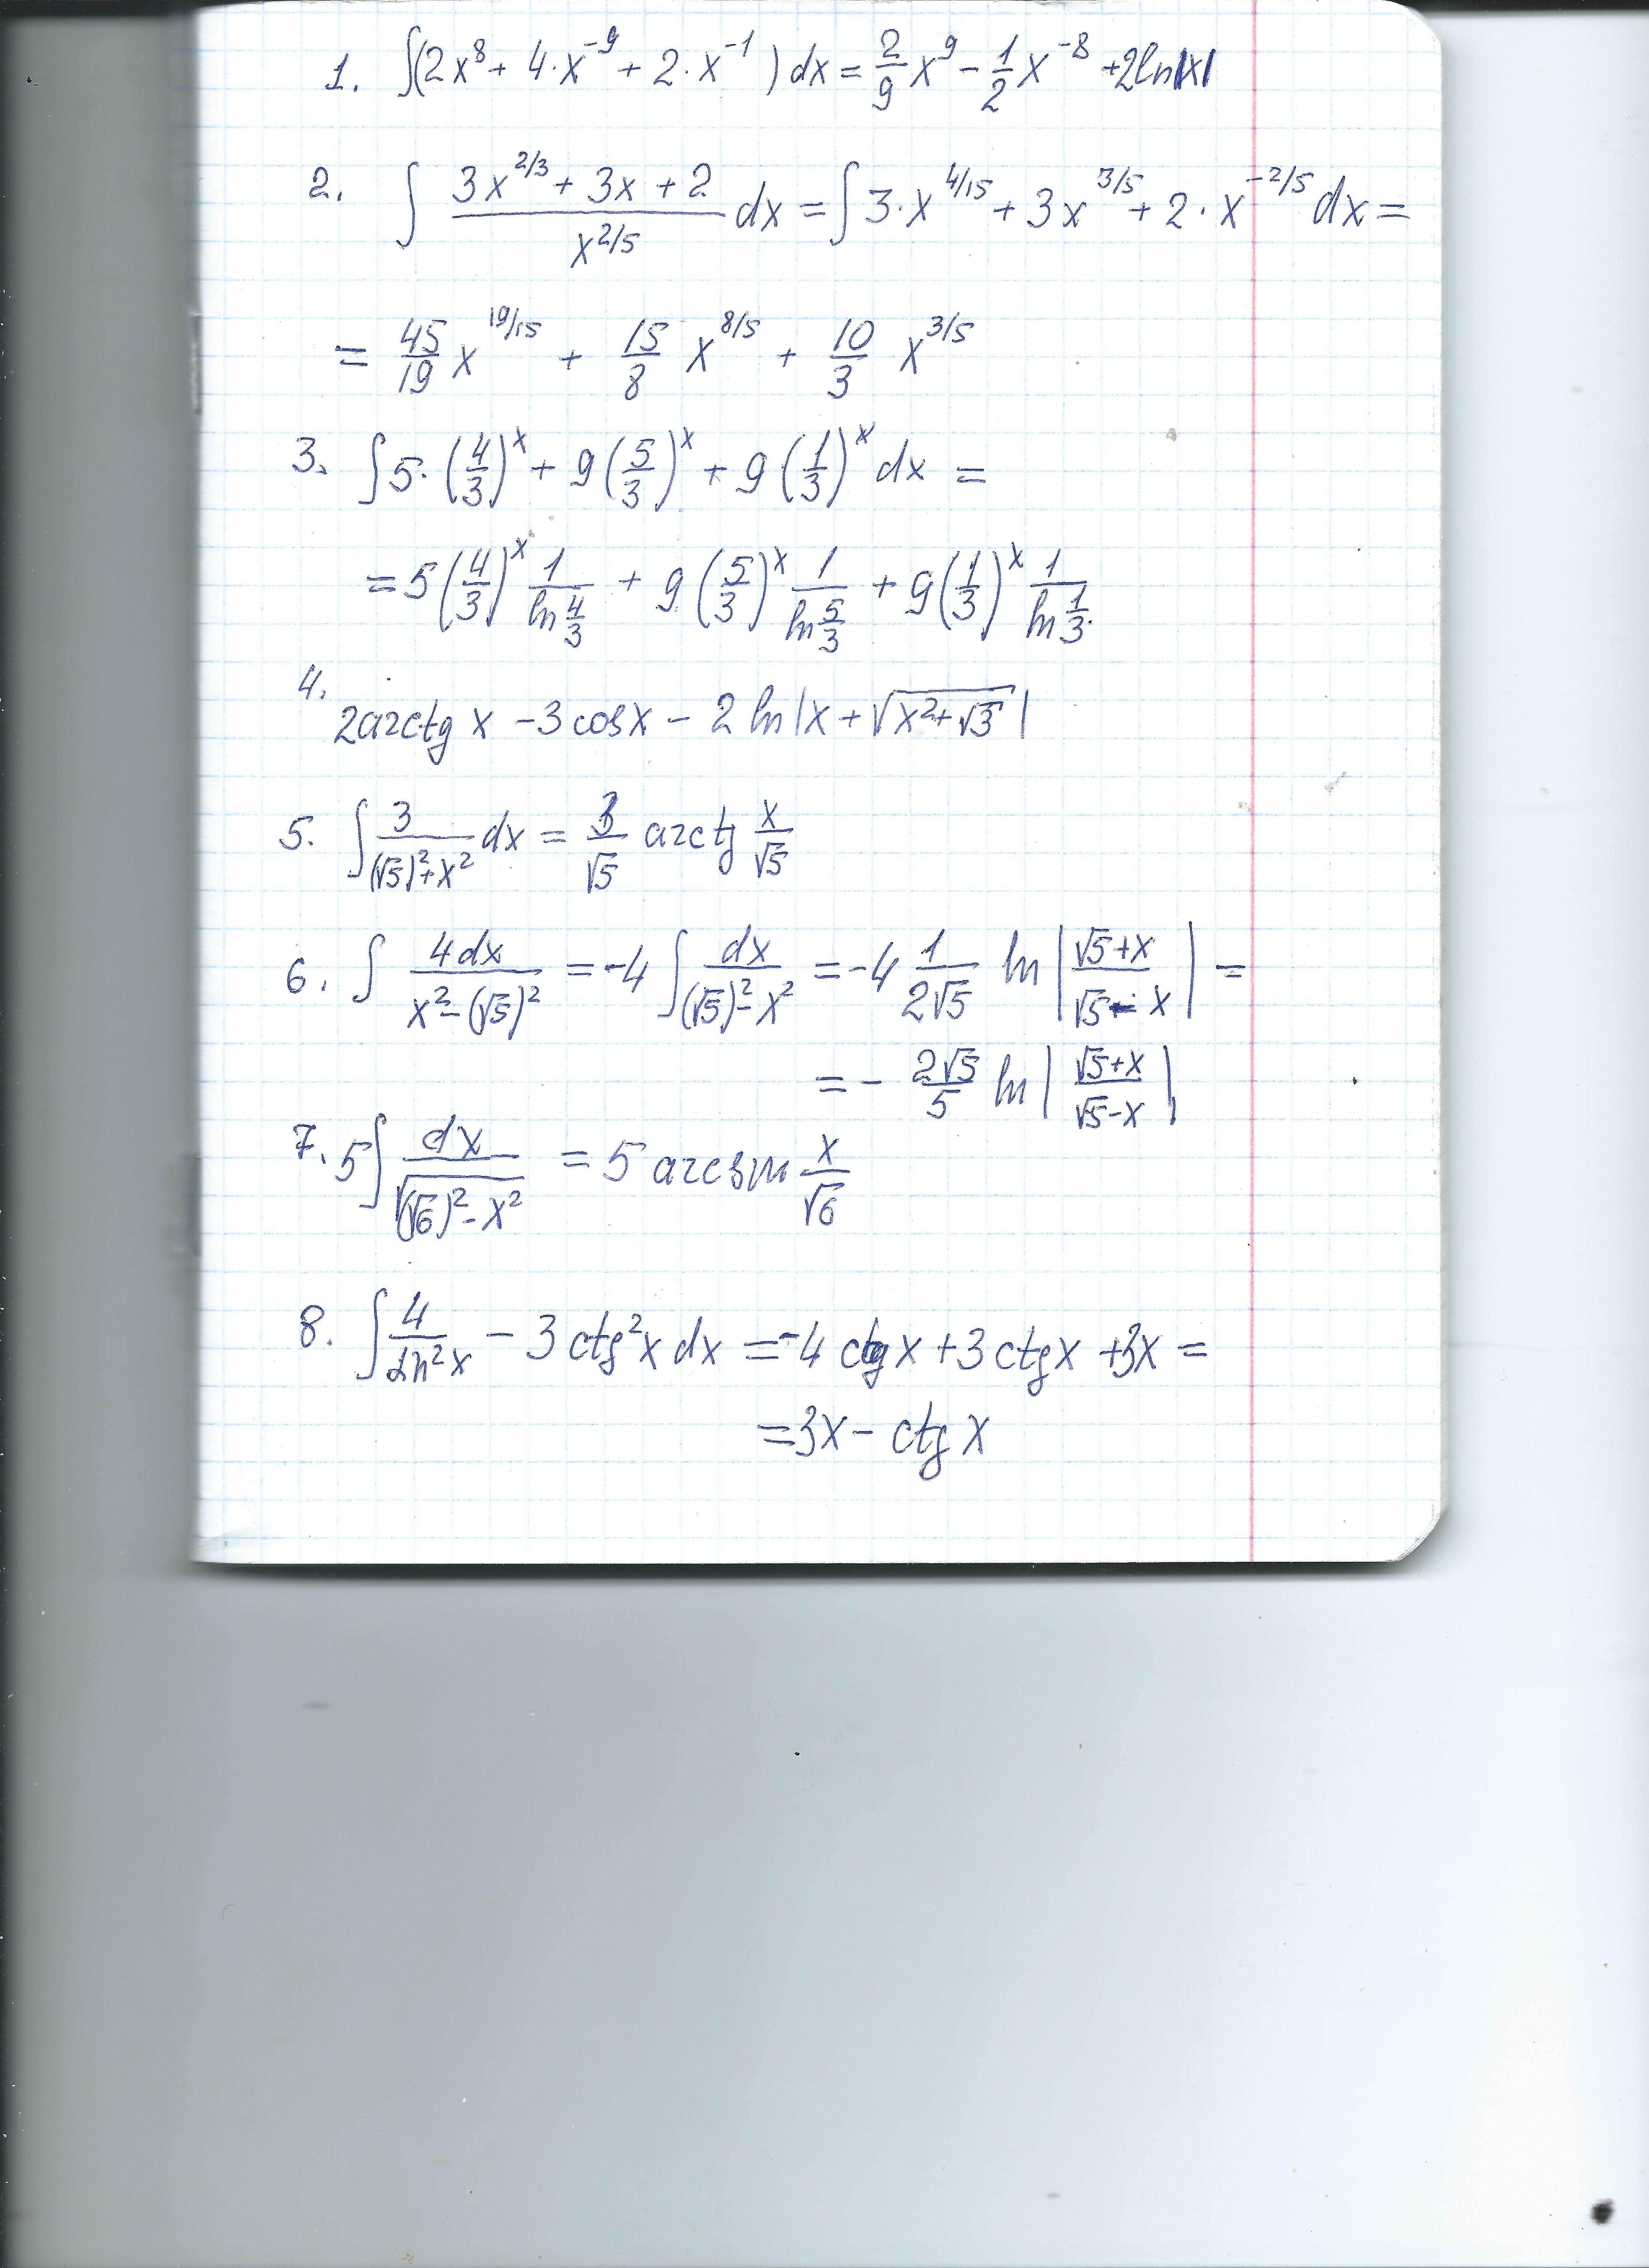 1. ∫(2x⁸ + 4·x⁻⁹ + 2·x⁻¹) dx = 2/9 x⁹ − 1/2 x⁻⁸ + 2ln|x|
2. ∫ (3x^(2/3) + 3x + 2)/x^(2/5) dx = ∫ 3·x^(4/15) + 3x^(3/5) + 2·x^(−2/5) dx =
= 45/19 x^(19/15) + 15/8 x^(8/5) + 10/3 x^(3/5)
3. ∫ 5·(4/3)^x + 9(5/3)^x + 9(1/3)^x dx =
= 5(4/3)^x 1/(ln 4/3) + 9(5/3)^x 1/(ln 5/3) + 9(1/3)^x 1/(ln 1/3)
4. 2arctg x − 3cosx − 2 ln|x + √(x² + √3)|
5. ∫ 3/((√5)² + x²) dx = 3/√5 arctg x/√5
6. ∫ 4dx/(x² − (√5)²) = −4 ∫ dx/((√5)² − x²) = −4 1/(2√5) ln|(√5+x)/(√5−x)| =
= − 2√5/5 ln|(√5+x)/(√5−x)|
7. 5∫ dx/√((√6)² − x²) = 5 arcsin x/√6
8. ∫ 4/sin²x − 3ctg²x dx = −4 ctgx + 3ctgx + 3x =
= 3x − ctg x